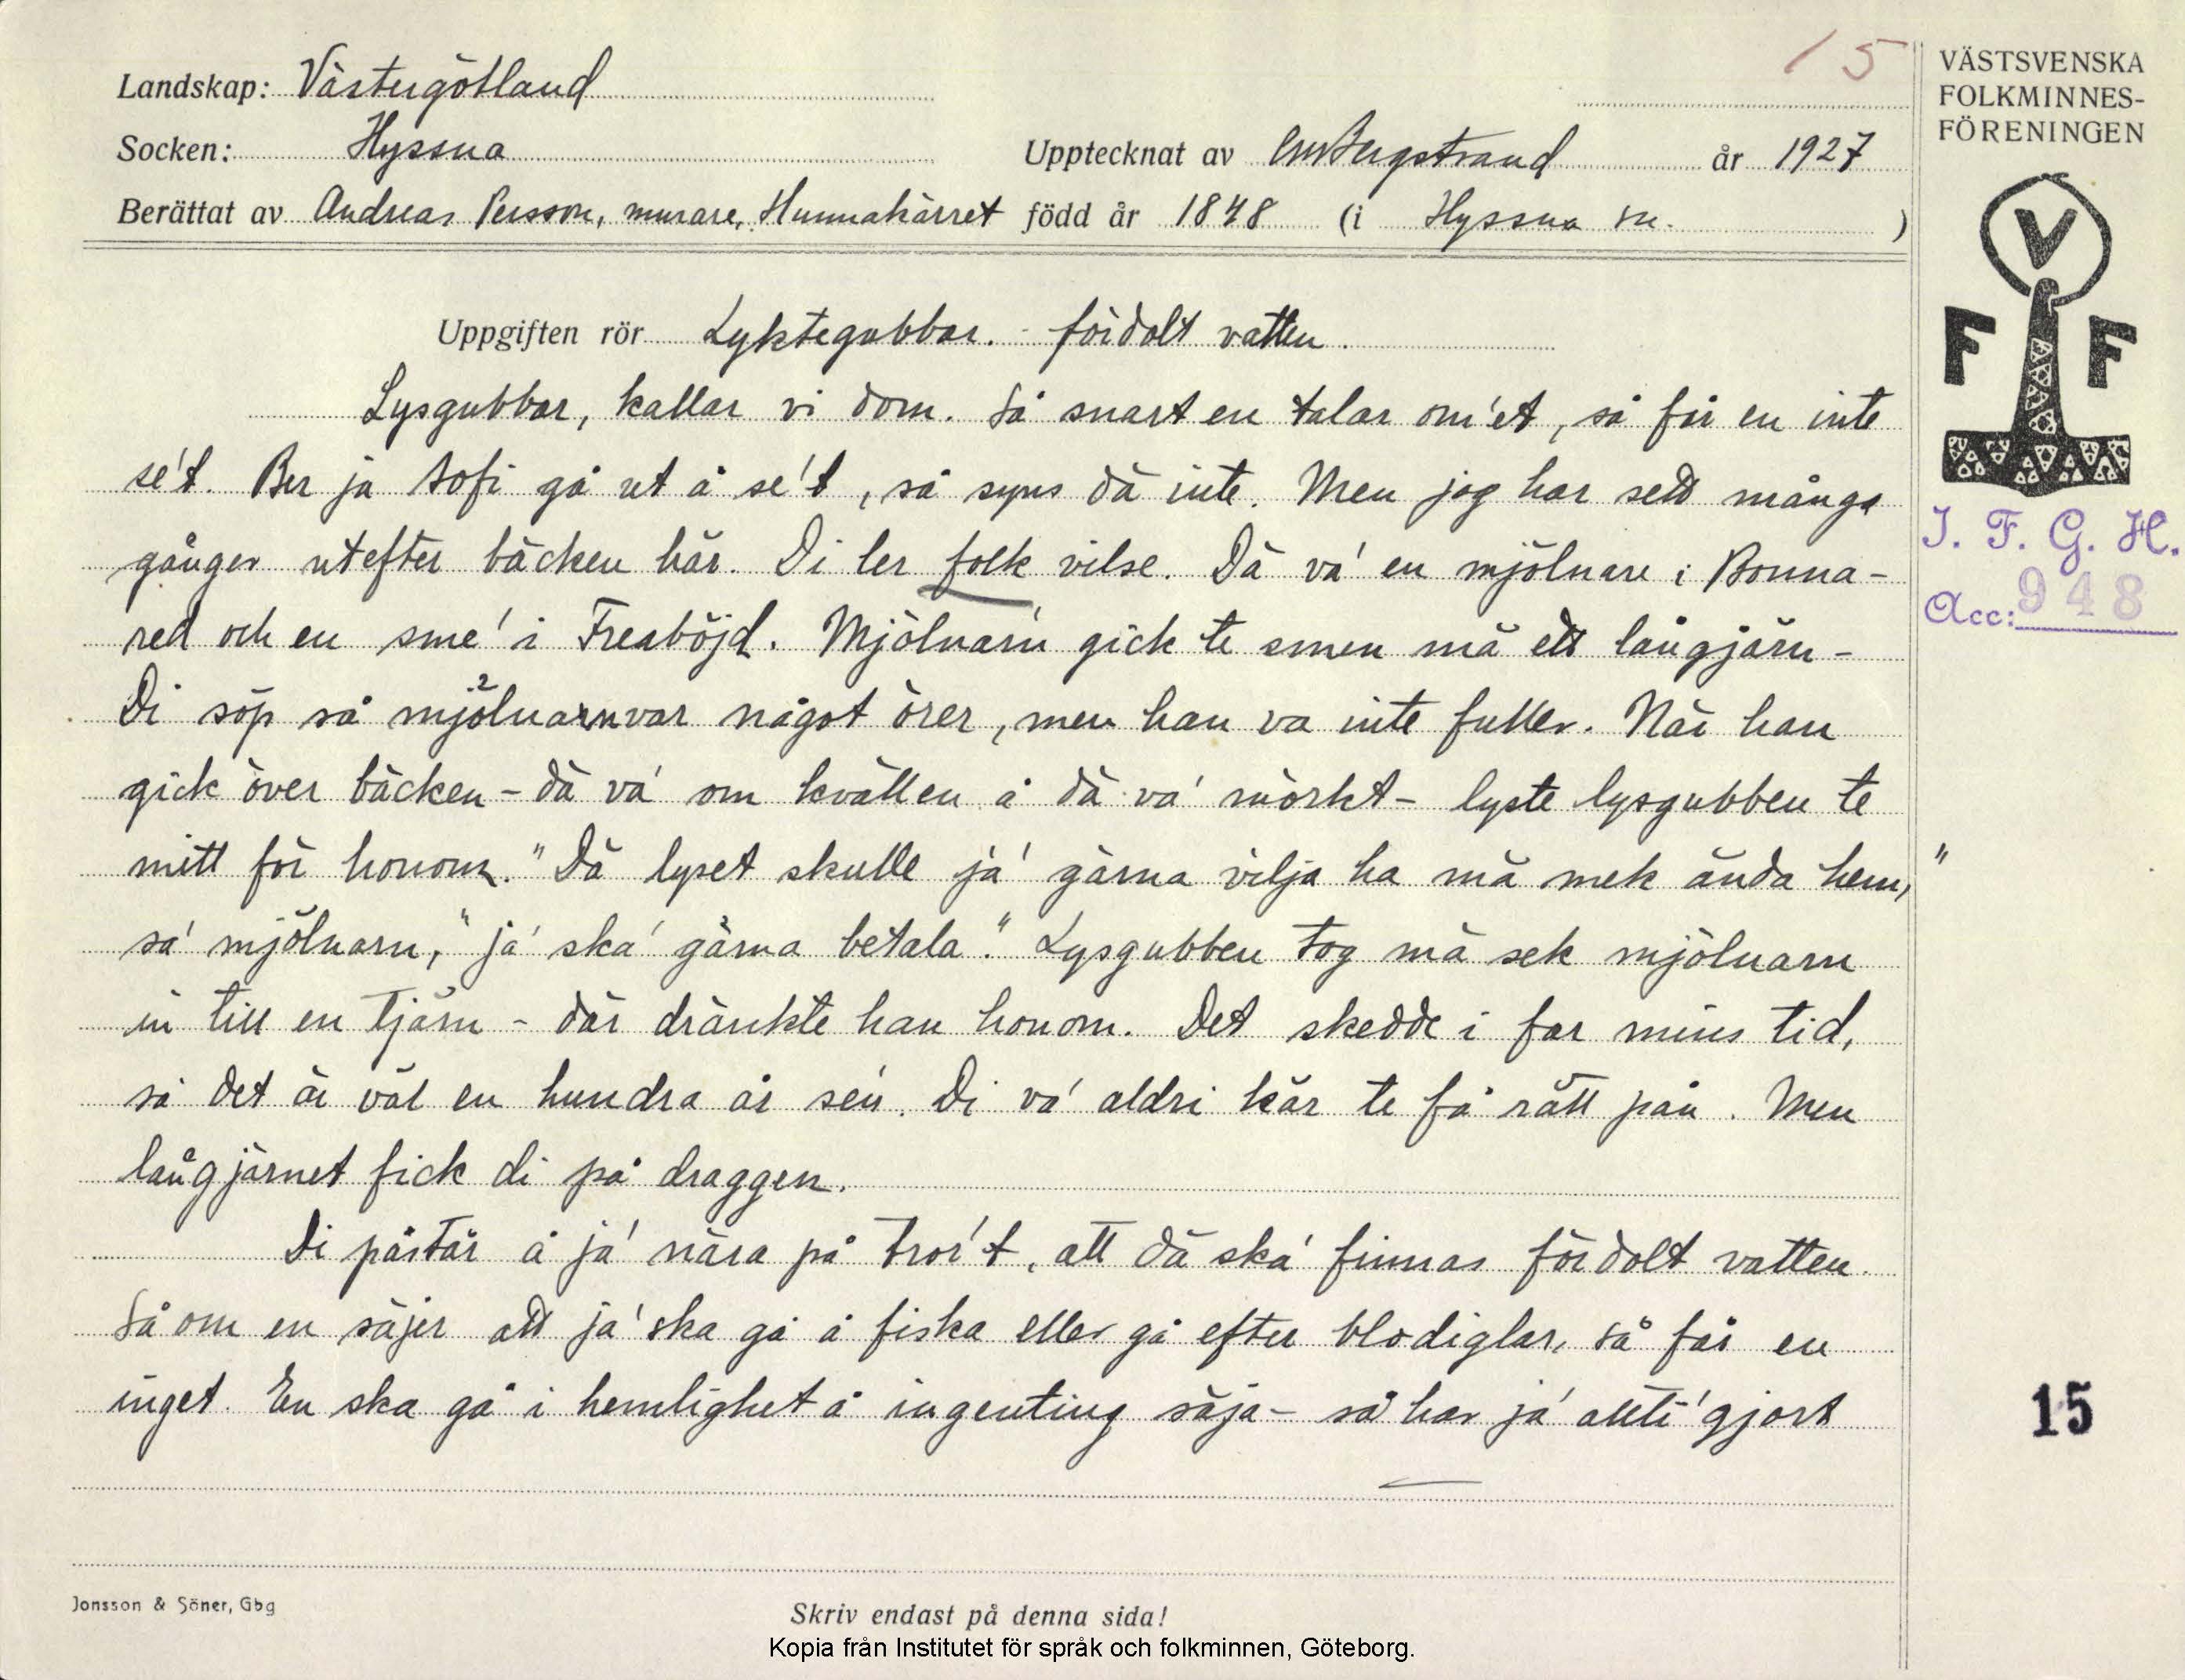 15
VÄSTSVENSKA
FOLKMINNES-
FÖRENINGEN
Landskap: Västergötland
Socken: Hyssna
Upptecknat av CMBergstrand år 1927
Berättat av Andreas Persson, murare, Hunnakärret född år 1848 (i Hyssna sn. )
V
F F
I. F. G. H.
Acc: 948
Uppgiften rör Lyktegubbar. - fördolt vatten.
Lysgubbar, kallar vi dom. Så snart en talar om'et, så får en inte
se't. Ber ja Sofi gå ut å se't, så syns dä inte. Men jag har sett många
gånger utefter bäcken här. Di ler folk vilse. Dä va' en mjölnare i Bonna-
red och en sme' i Freaböjd. Mjölnarn gick te smen mä ett långjärn -
Di söp så mjölnarn var något örer, men han va inte fuller. När han
gick över bäcken - dä va' om kvällen å dä va' mörkt - lyste lysgubben te
mitt för honom. "Dä lyset skulle ja' gärna vilja ha mä mek ända hem,"
sa' mjölnarn, "ja' ska' gärna betala." Lysgubben tog mä sek mjölnarn
in till en tjärn - där dränkte han honom. Det skedde i far mins tid,
så det är väl en hundra år sen. Di va' aldri kär te få rätt på'n. Men
långjärnet fick di på draggen.
Di påstår å ja' nära på tror't, att dä ska' finnas fördolt vatten.
Så om en säjer att ja' ska gå å fiska eller gå efter blodiglar, så får en
inget. En ska gå i hemlighet å ingenting säja - så har ja' allti' gjort
15
Jonsson & Söner, Gbg
Skriv endast på denna sida!
Kopia från Institutet för språk och folkminnen, Göteborg.